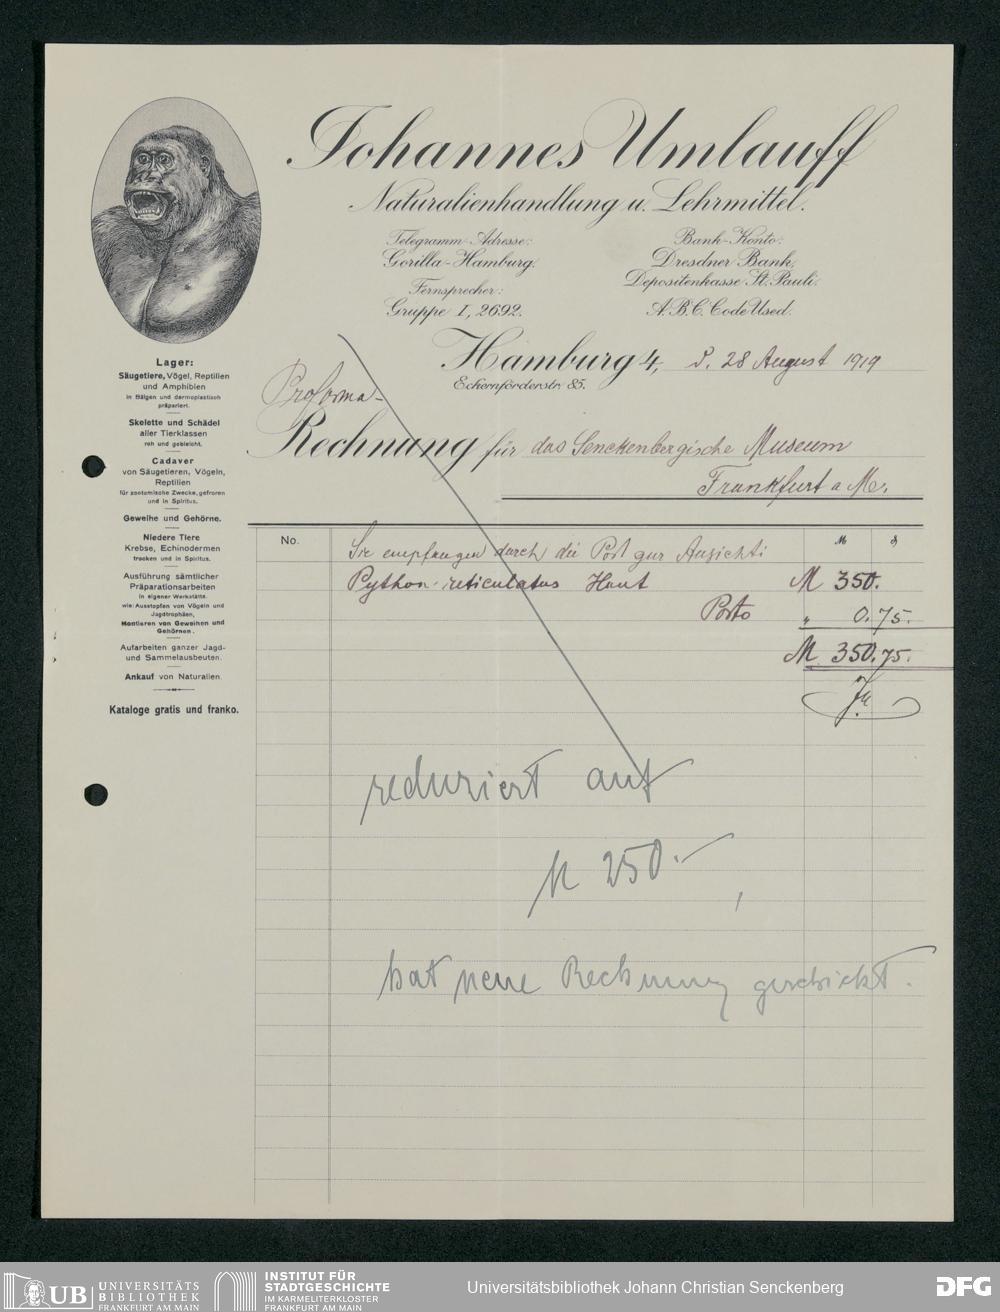 Johannes Umlauff
Naturalienhandlung u. Lehrmittel.
Telegramm-Adresse:
Gorilla-Hamburg.
Fernsprecher:
Gruppe I, 2692.
Bank-Konto:
Dresdner Bank,
Depositenkasse St. Pauli.
A.B.C. Code Used.
Hamburg 4, d. 28 August 1919
Eckernförderstr. 85.
Proforma-
Rechnung für das Senckenbergische Museum
Frankfurt a M.
Lager:
Säugetiere, Vögel, Reptilien
und Amphibien
in Bälgen und dermoplastisch
präpariert.
Skelette und Schädel
aller Tierklassen
roh und gebleicht.
Cadaver
von Säugetieren, Vögeln,
Reptilien
für zootomische Zwecke, gefroren
und in Spiritus.
Geweihe und Gehörne.
Niedere Tiere
Krebse, Echinodermen
trocken und in Spiritus.
Ausführung sämtlicher
Präparationsarbeiten
in eigener Werkstätte.
wie: Ausstopfen von Vögeln und
Jagdtrophäen,
Montieren von Geweihen und
Gehörnen.
Aufarbeiten ganzer Jagd-
und Sammelausbeuten.
Ankauf von Naturalien.
Kataloge gratis und franko.
No.
Sie empfangen durch die Post zur Ansicht:
Python reticulatus Haut M 350.
Porto " 0.75.
M 350.75.
reduziert auf
M 250.-
hat neue Rechnung geschickt.
UB UNIVERSITÄTS
BIBLIOTHEK
FRANKFURT AM MAIN
INSTITUT FÜR
STADTGESCHICHTE
IM KARMELITERKLOSTER
FRANKFURT AM MAIN
Universitätsbibliothek Johann Christian Senckenberg
DFG